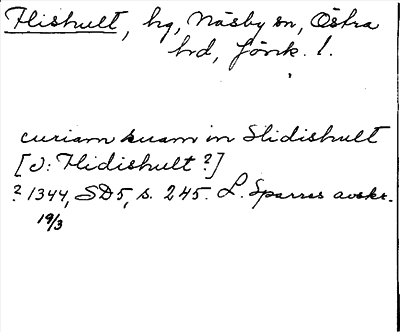 Flishult, hg, Näsby sn, Östra
hrd, Jönk. l.
curiam suam in Slidishult
[ɔ: Flidishult ?]
? 1344, SD5, s. 245. L. Sparres avskr.
19/3